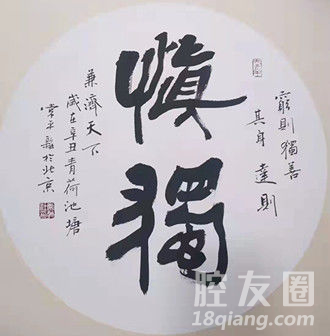 窮則獨善
其身達則
慎獨
兼濟天下
歲在辛丑青荷池塘
於北京
腔友圈
18qiang.com